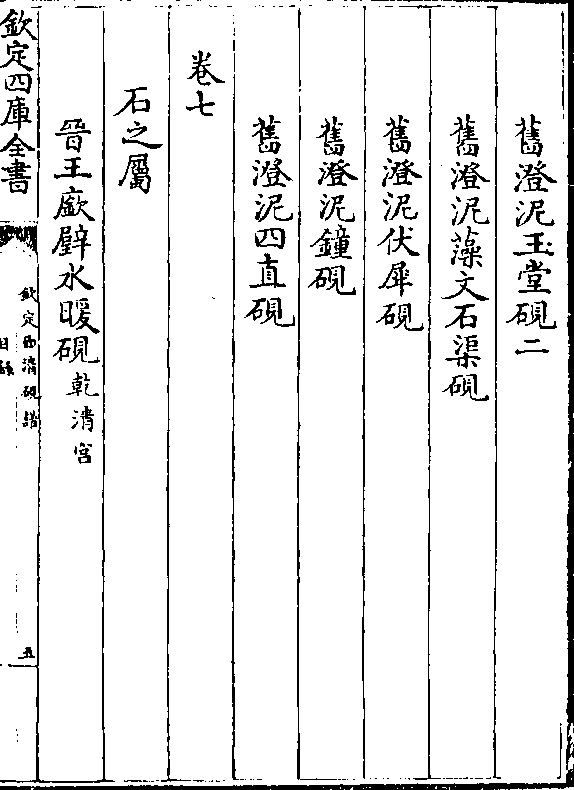 舊澄泥玉堂硯二
舊澄泥藻文石渠硯
舊澄泥伏犀硯
舊澄泥鐘硯
舊澄泥四直硯
卷七
石之屬
晉王廞璧水暖硯 乾清宮
欽定四庫全書
欽定西清硯譜
目錄
五